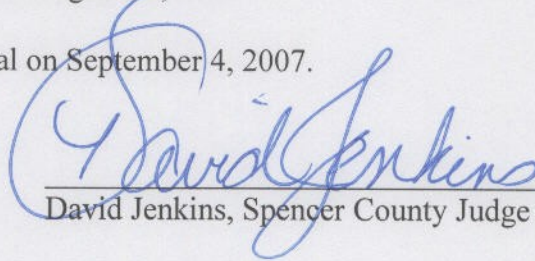 al on September 4, 2007.
David Jenkins
David Jenkins, Spencer County Judge